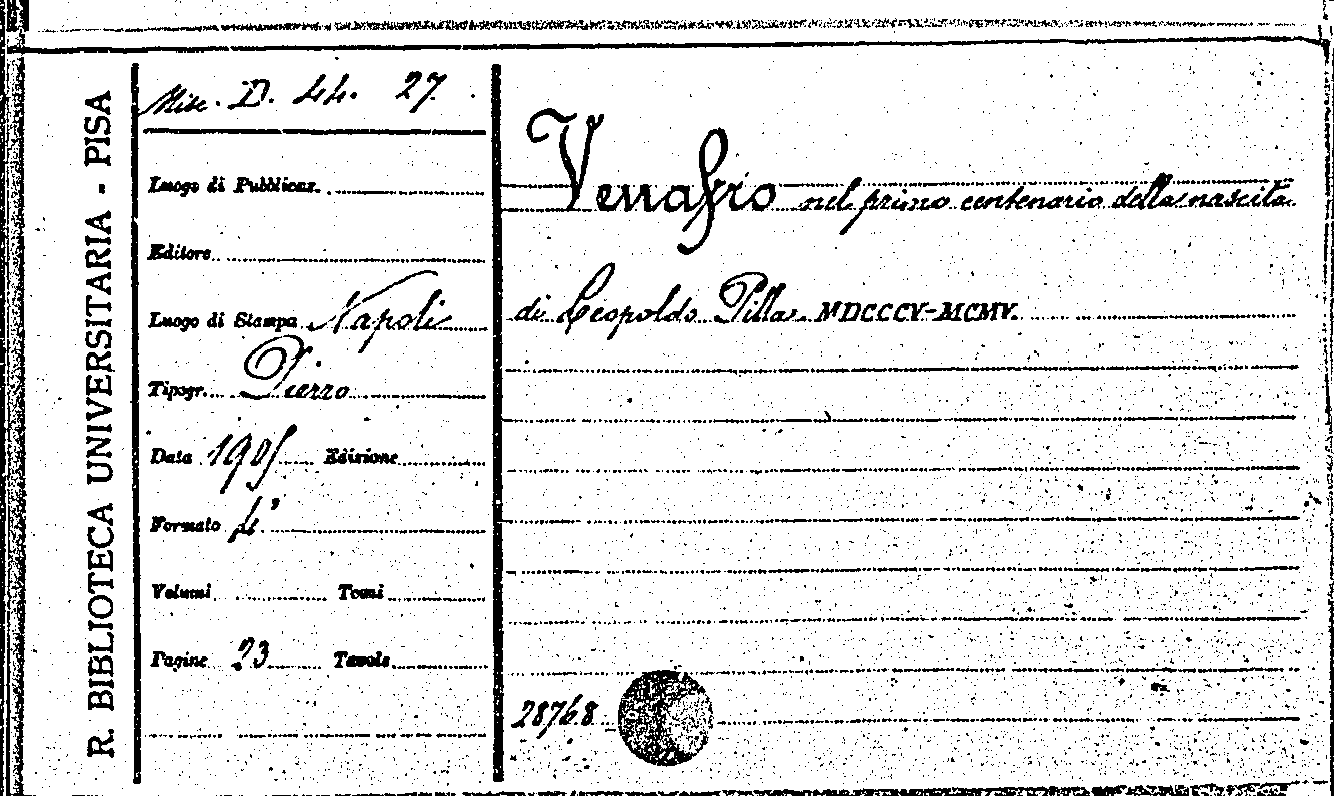 R. BIBLIOTECA UNIVERSITARIA - PISA
Misc. D. 44. 27.
Luogo di Pubblicaz.
Editore
Luogo di Stampa Napoli
Tipogr. Pierro
Data 1905 Edizione
Formato 4°
Volumi Tomi
Pagine 23 Tavole
Venafro nel primo centenario della nascita
di Leopoldo Pilla. MDCCCV-MCMV.
28768